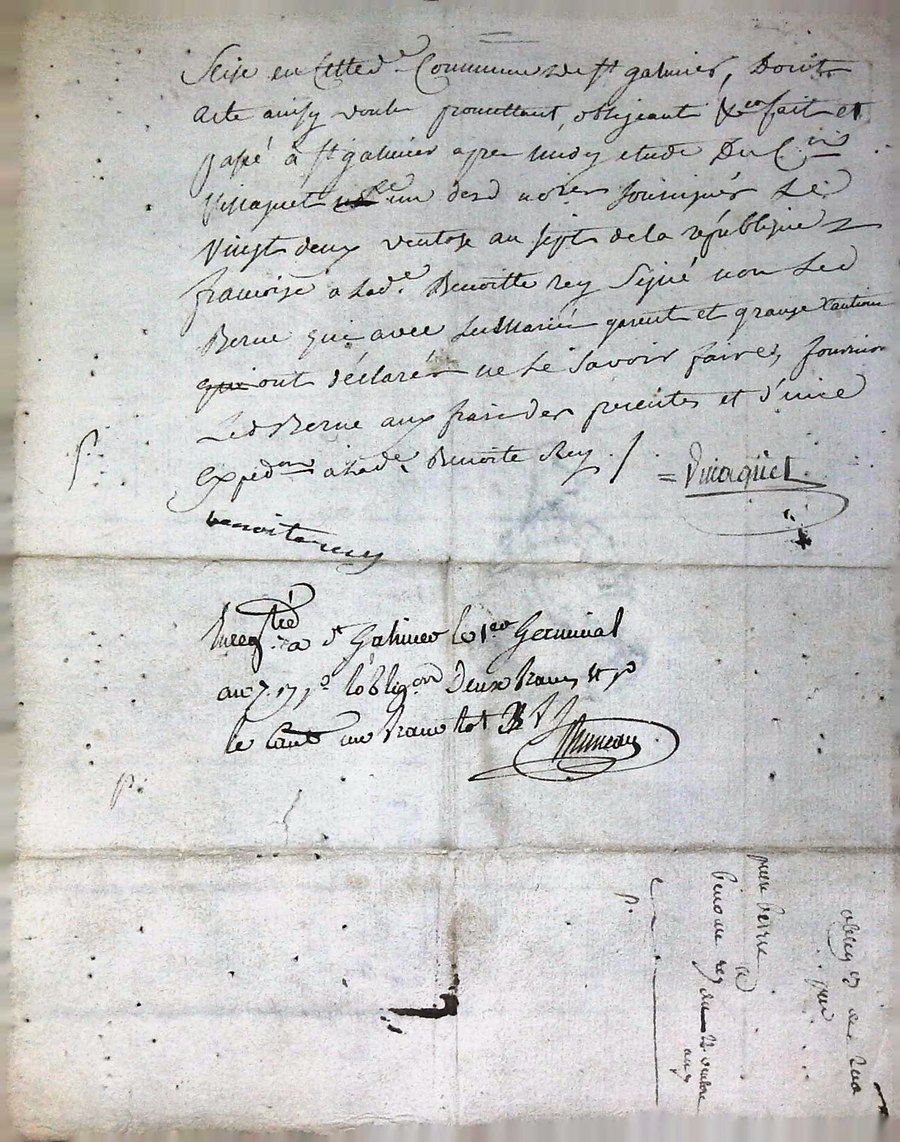 Sise en cette de. Commune de st galmier, Dont
acte ainsy voulu promettant, obligeant &ca fait et
passé à st galmier apres midy etude Du C.en
Vinaquet un desd nores soussignés Le
Vingt deux ventose an sept de la république
francoise a Lade. Benoitte rey Signé non Led
Berne qui avec garent et grange Caution
ont déclarés ne Le Savoir faire, fournira
Led Berne aux frais des presentes et d'une
Expedon a Lade. Benoite Rey /. = Vinaquet
benoite rey
Enregtré a st Galmier le 1er Germinal
an 7. l'obligon Deux francs
le Caut un franc
p.
pierre berne
a
benoite rey du 22 ventose
an 7
p.